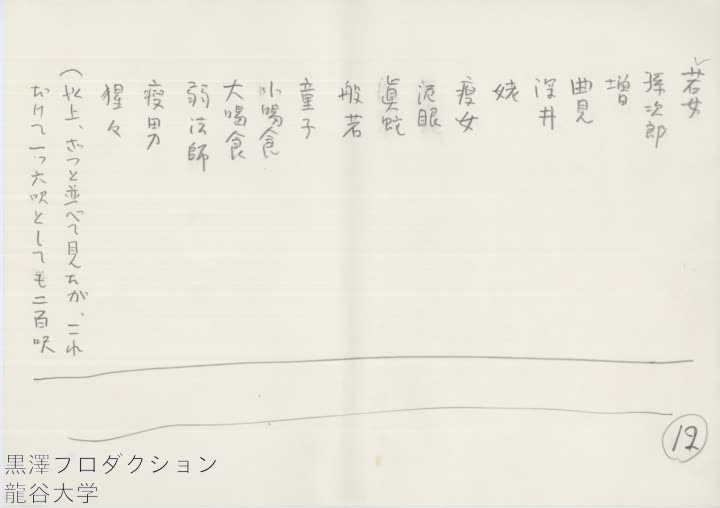 若女
孫次郎
増
曲見
深井
姥
痩女
泥眼
眞蛇
般若
童子
小喝食
大喝食
弱法師
痩男
猩々
(以上、ざつと並べて見たが、これ
だけで一つ六呎としても二百呎
12
黒澤フロダクション
龍谷大学